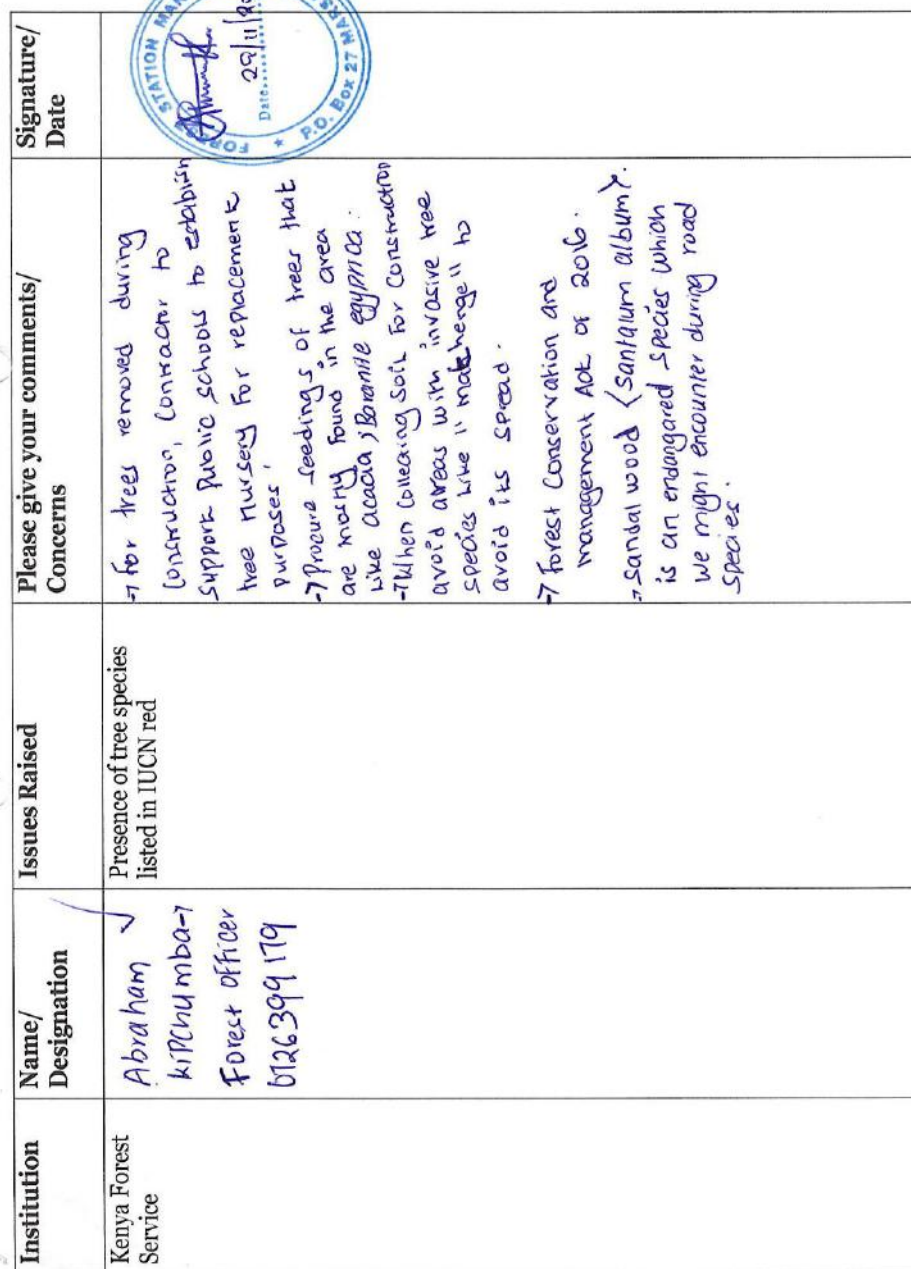 Institution
Name/
Designation
Issues Raised
Please give your comments/
Concerns
Signature/
Date
Kenya Forest
Service
Abraham
Kipchumba→
Forest officer
0726399179
Presence of tree species
listed in IUCN red
→ For trees removed during
Construction, Contractor to
support public schools to establish
tree nursery for replacement
purposes.
→ Procure seedings of trees that
are mostly found in the area
like acacia, egyptica.
→ When collecting soil for construction
avoid areas with invasive tree
species like "mathenge" to
avoid its spread.
→ Forest Conservation and
management Act of 2016.
→ Sandal wood (santalum album).
is an endangared species which
we might encounter during road
species.
STATION MAN
29/11/20
Date
P.O. Box 27 MARS